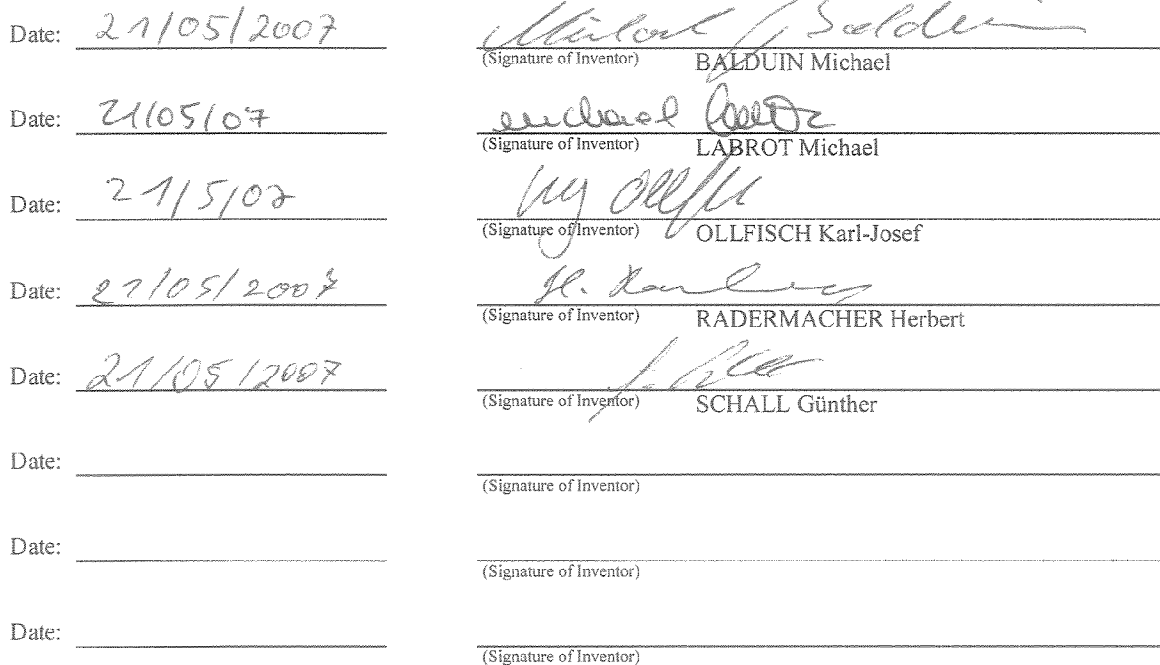 Date: 21/05/2007 Michael Balduin
(Signature of Inventor) BALDUIN Michael
Date: 21/05/07 michael
(Signature of Inventor) LABROT Michael
Date: 21/5/07
(Signature of Inventor) OLLFISCH Karl-Josef
Date: 21/05/2007 H.
(Signature of Inventor) RADERMACHER Herbert
Date: 21/05/2007
(Signature of Inventor) SCHALL Günther
Date:
(Signature of Inventor)
Date:
(Signature of Inventor)
Date:
(Signature of Inventor)